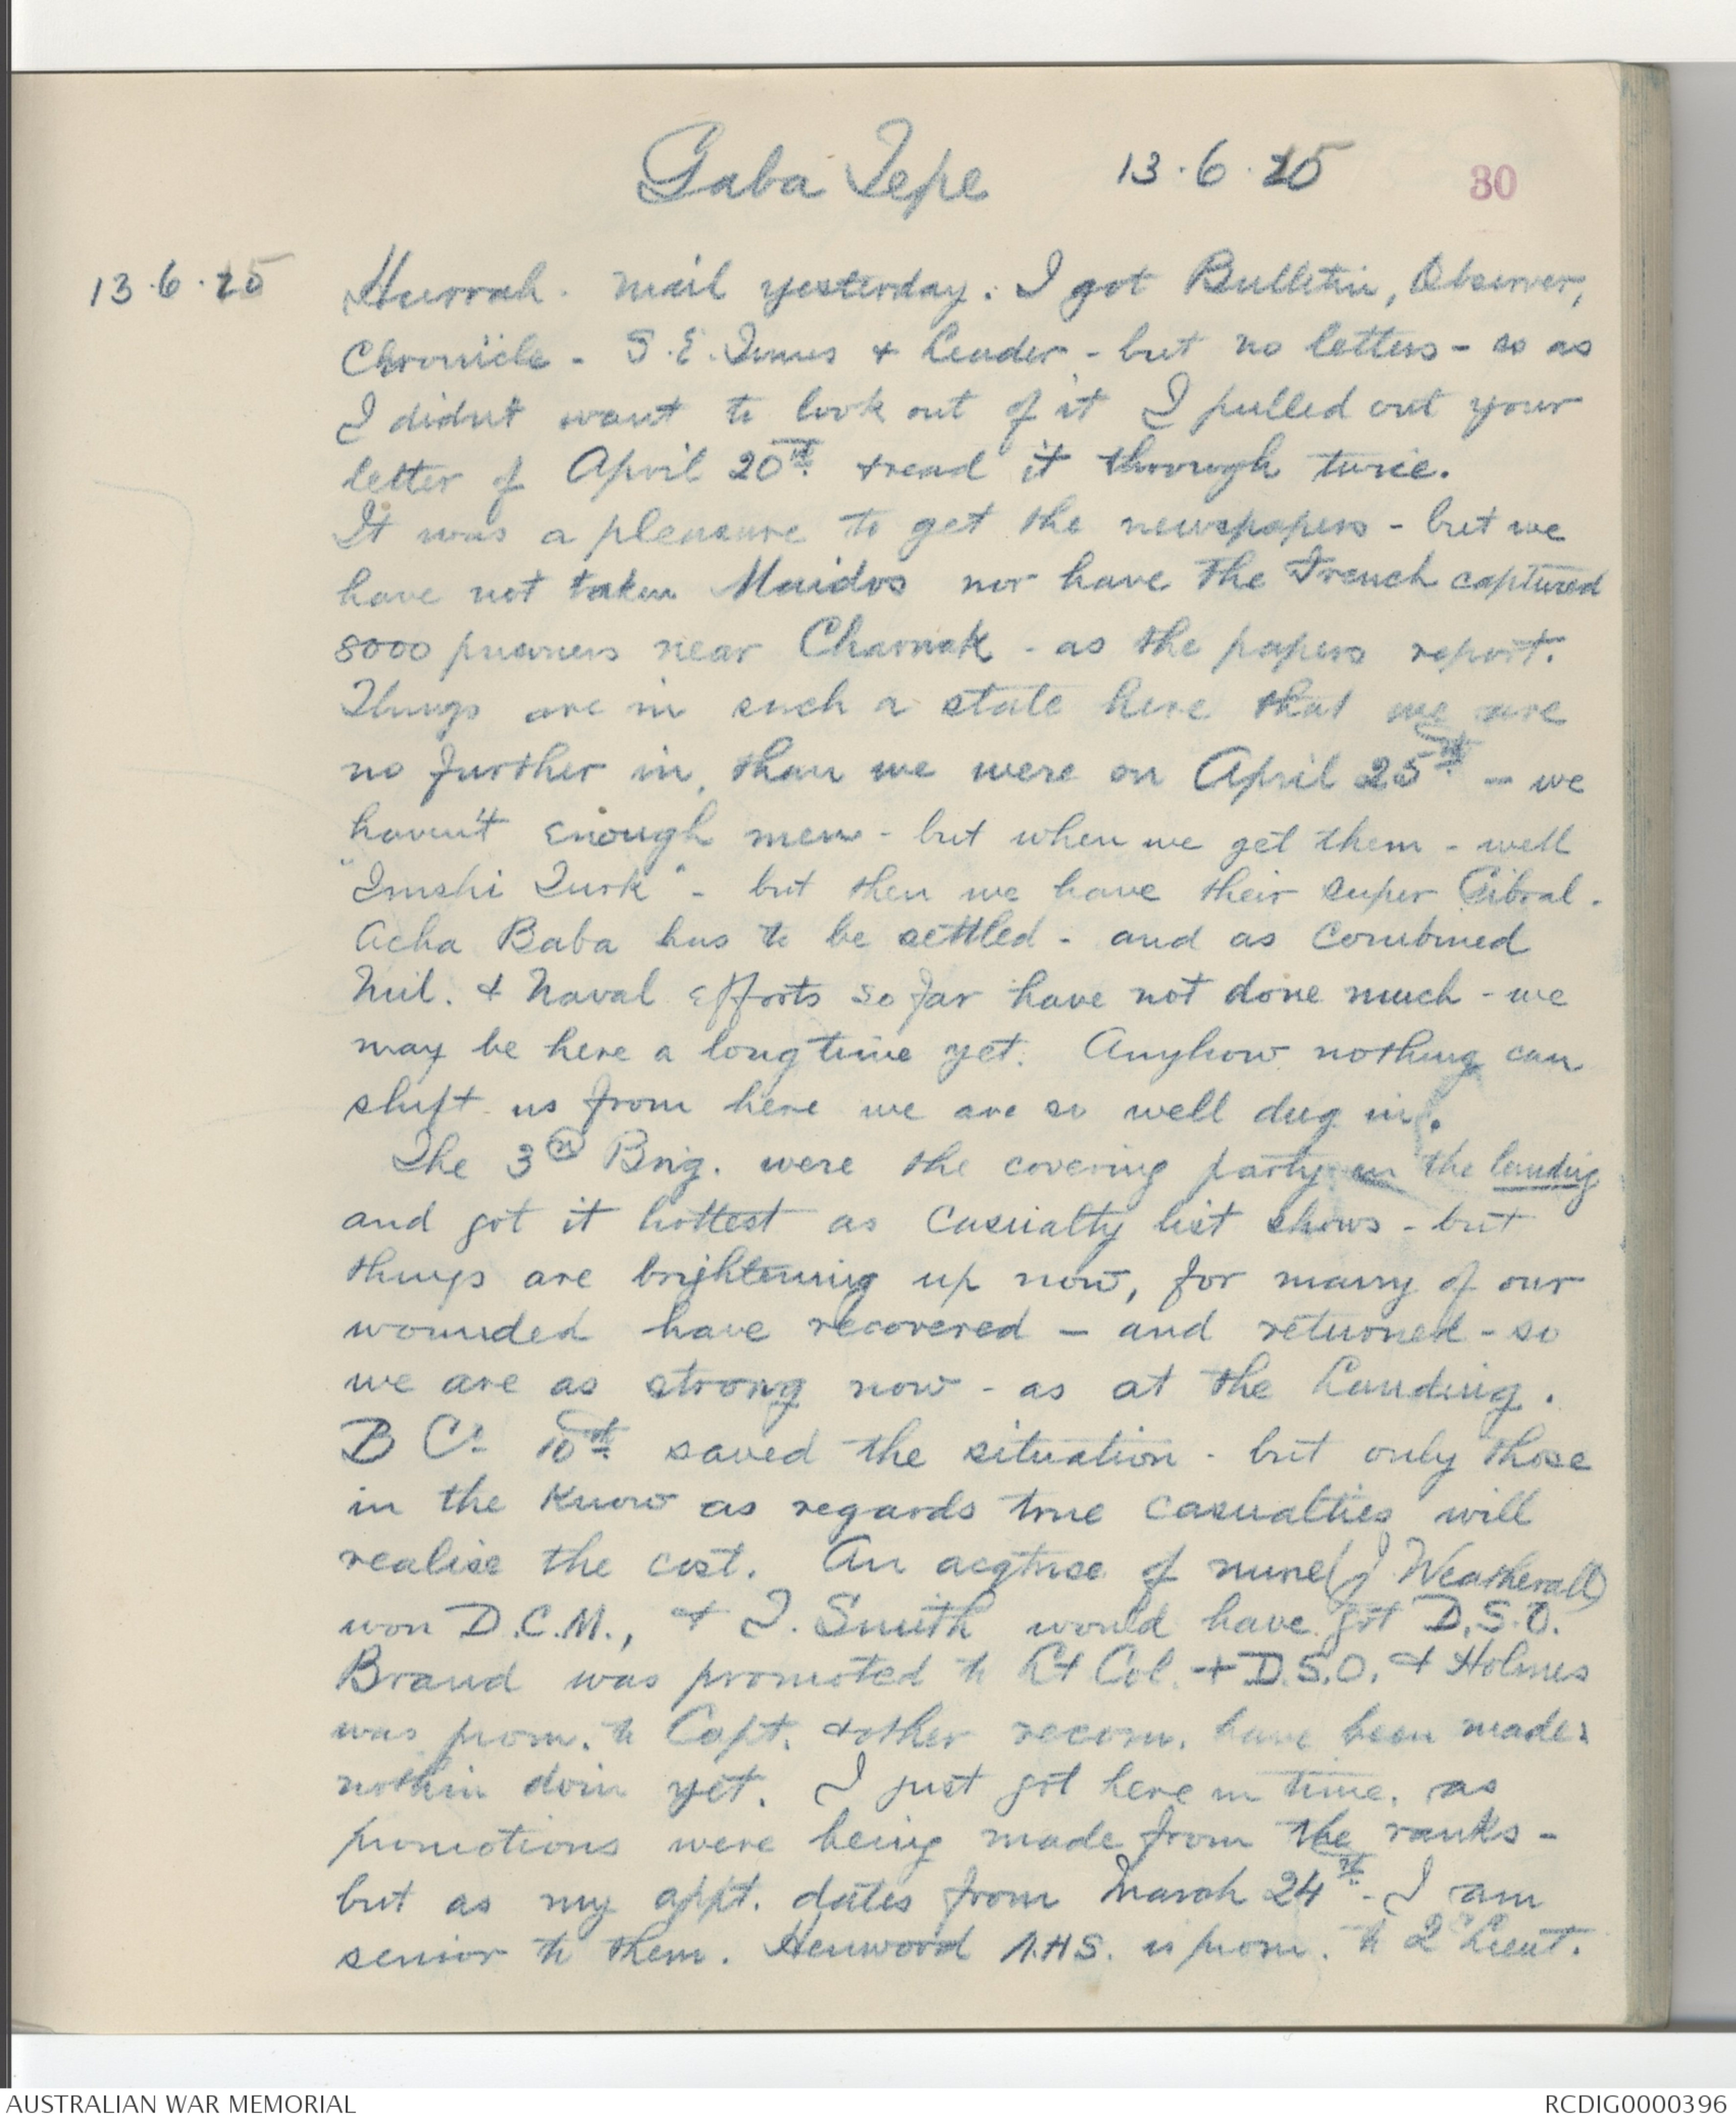 Gaba Tepe 13.6.15
30
13.6.15 Hurrah. Mail yesterday. I got Bulletin, Observer,
Chronicle - S.E. Times & Leader - but no letters - so as
I didn't want to look out of it I pulled out your
letter of April 20th & read it through twice.
It was a pleasure to get the newspapers - but we
have not taken Maidos nor have the French captured
8000 prisoners near Charnak - as the papers report.
Things are in such a state here that we are
no further in, than we were on April 25th - we
haven't enough men - but when we get them - well
"Imshi Turk" - but then we have their super Gibral.
Acha Baba has to be settled - and as combined
Mil. & Naval efforts so far have not done much - we
may be here a long time yet. Anyhow nothing can
shift us from here we are so well dug in.
The 3rd Brig. were the covering party in the landing
and got it hottest as casualty list shows - but
things are brightening up now, for many of our
wounded have recovered - and returned - so
we are as strong now - as at the Landing.
B Co 10th saved the situation - but only those
in the know as regards true casualties will
realise the cost. An acqtnce of mine (J Weatherall)
won D.C.M., & T. Smith would have got D.S.O.
Brand was promoted to Lt Col. + D.S.O. & Holmes
was prom. to Capt. & other recom. have been made:
nothin doin yet. I just got here in time, as
promotions were being made from the ranks -
but as my appt. dates from March 24th - I am
senior to them. Henwood A.H.S. is prom. to 2" Lieut.
AUSTRALIAN WAR MEMORIAL
RCDIG0000396